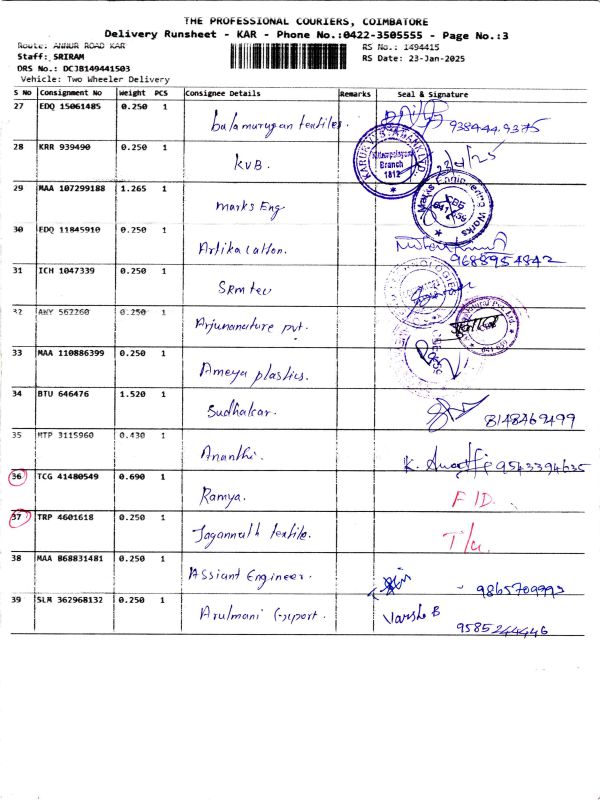 THE PROFESSIONAL COURIERS, COIMBATORE
Delivery Runsheet - KAR - Phone No.:0422-3505555 - Page No.:3
Route: ANNUR ROAD KAR RS No.: 1494415
Staff: SRIRAM RS Date: 23-Jan-2025
DRS No.: DCJB149441503
Vehicle: Two Wheeler Delivery
S No Consignment No Weight PCS Consignee Details Remarks Seal & Signature
27 EDQ 15061485 0.250 1 balamurugan textiles. 938444 9375
28 KRR 939490 0.250 1 KVB Branch 1812
29 MAA 107299188 1.265 1 Marks Eng Marks Engineering Works
30 EDQ 11845910 0.250 1 Artika Cotton. 9688954842
31 ICH 1047339 0.250 1 SRM tec
32 AWY 562260 0.250 1 Arjunanature pvt.
33 MAA 110886399 0.250 1 Ameya plastics.
34 BTU 646476 1.520 1 Sudhakar. 8148469499
35 MTP 3115960 0.430 1 Ananthi. 9543394635
36 TCG 41480549 0.690 1 Ramya. FID.
37 TRP 4601618 0.250 1 Jagannath textile.
38 MAA 868831481 0.250 1 Assiant Engineer. 9865709992
39 SLM 362968132 0.250 1 Arulmani Export. Varsha B
9585244446